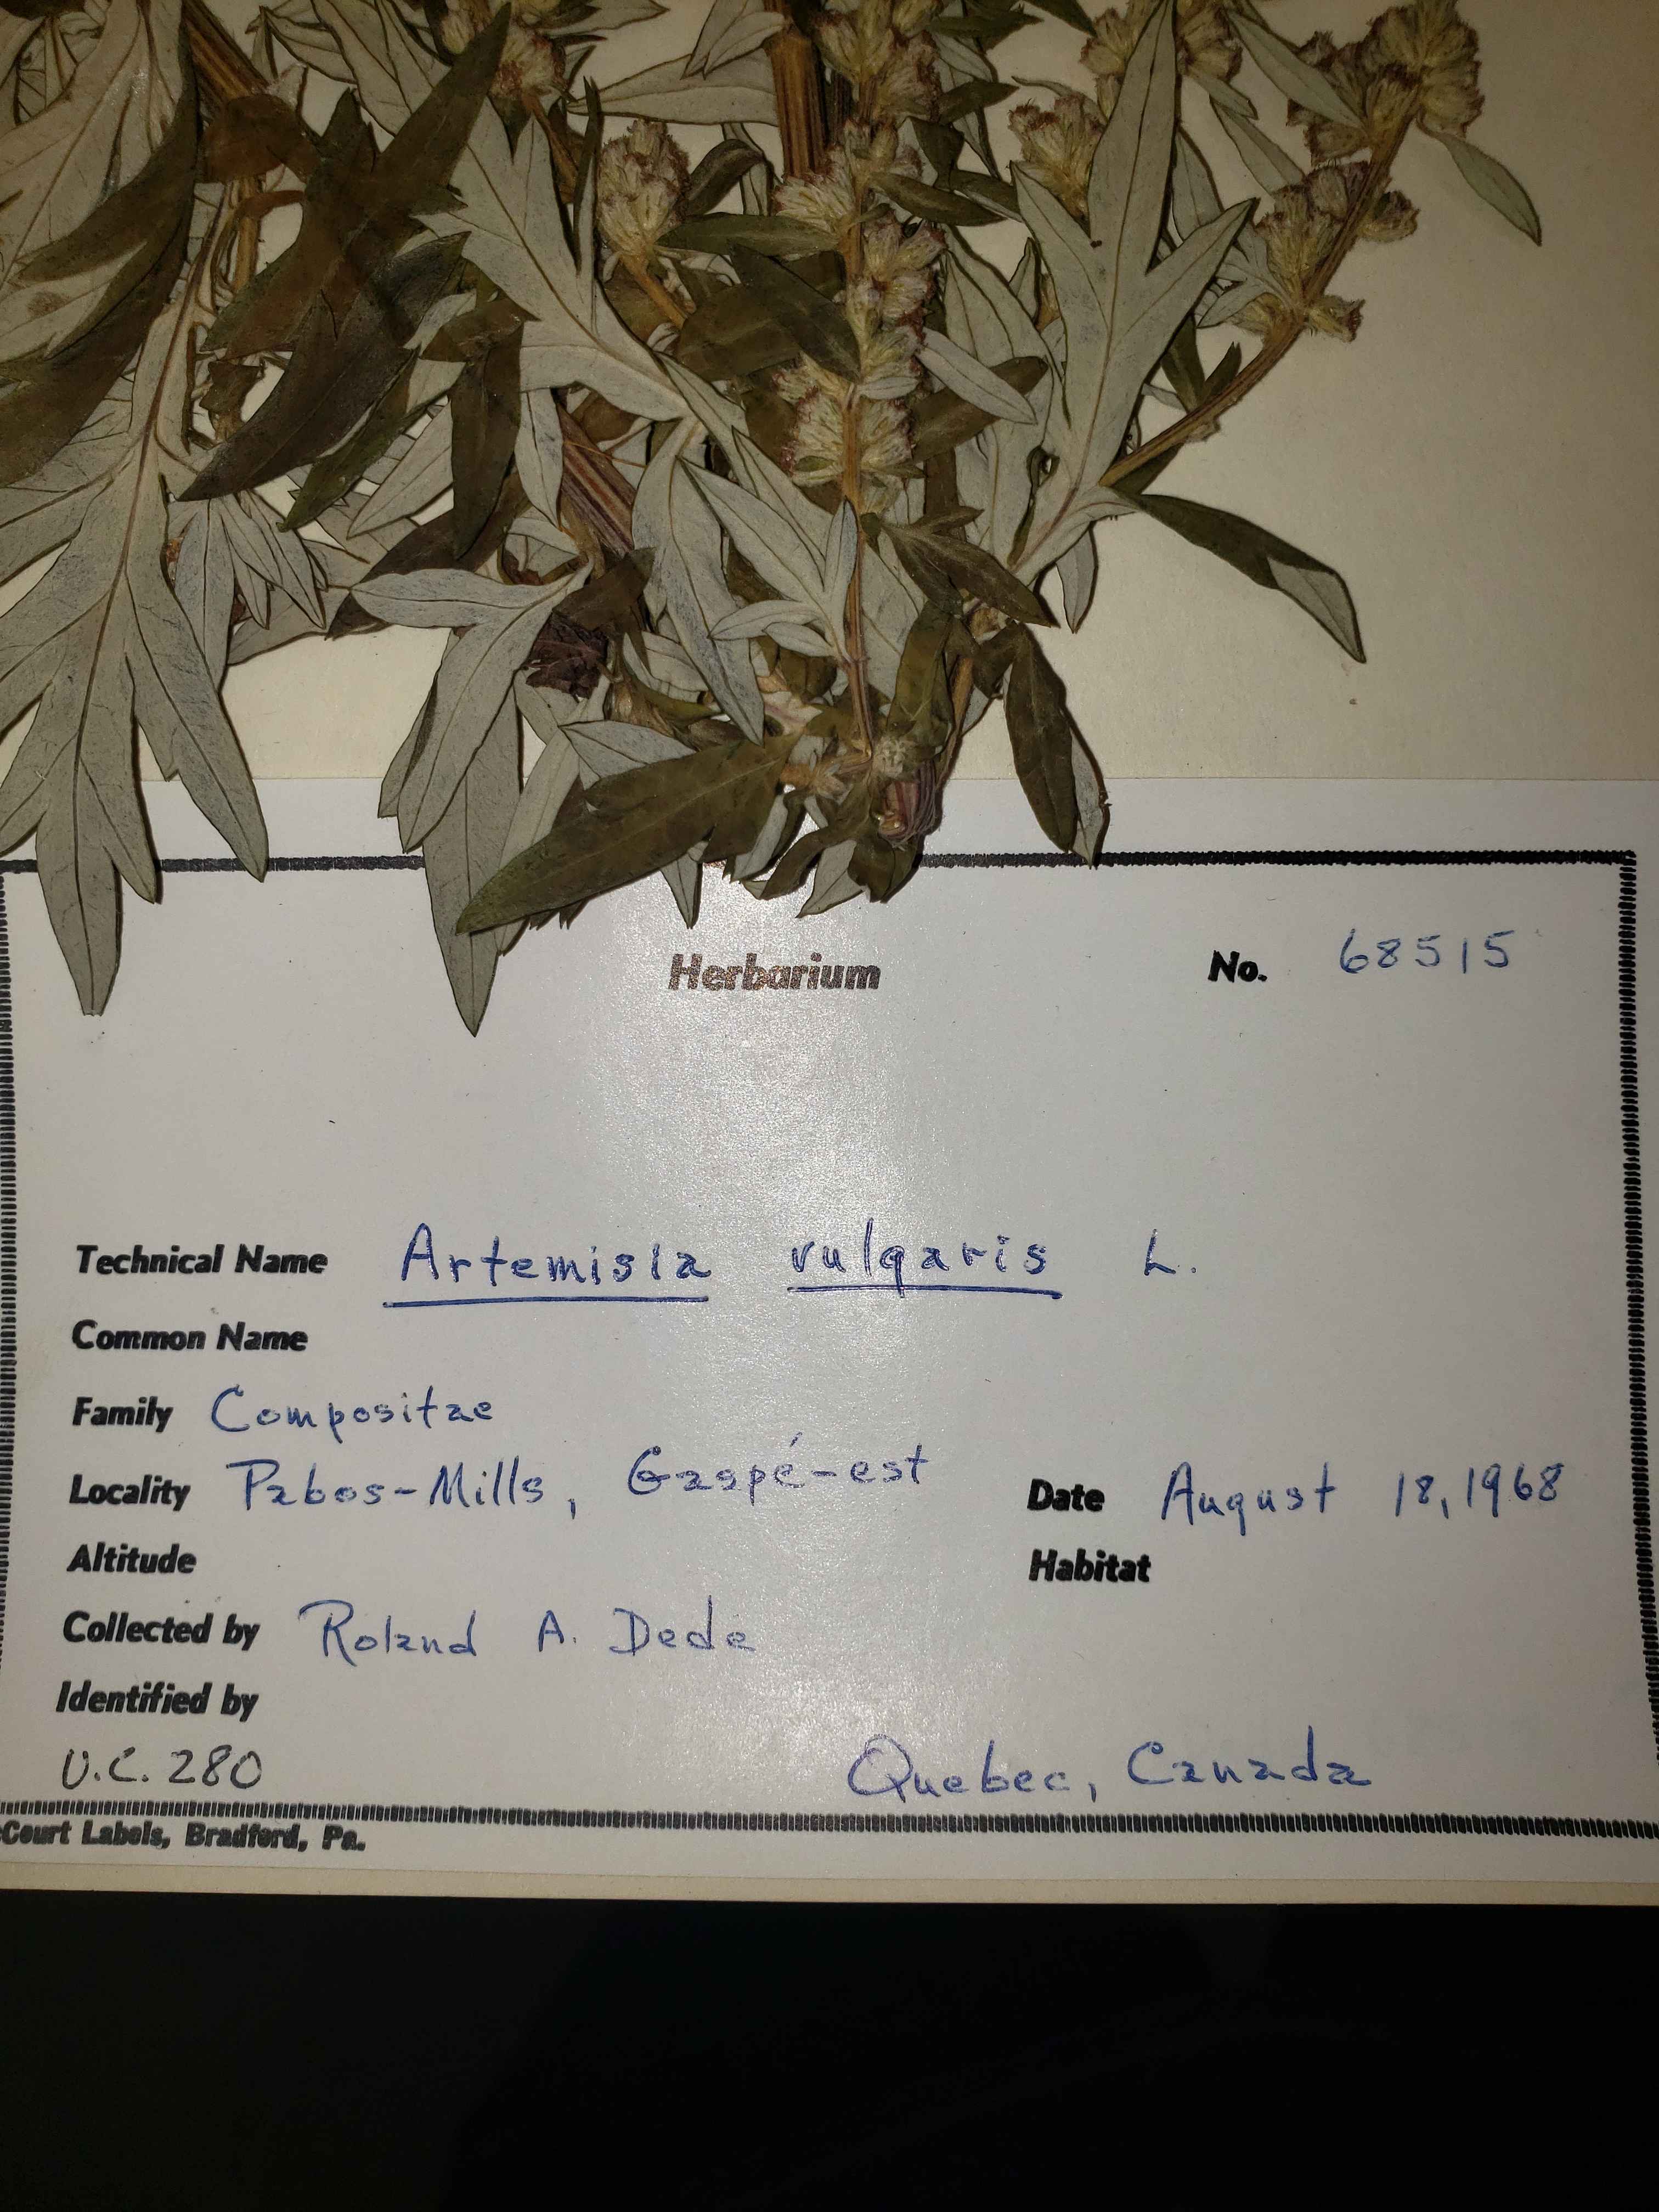 Herbarium No. 68515
Technical Name Artemisia vulgaris L.
Common Name
Family Compositae
Locality Pabos-Mills, Gaspé-est Date August 18, 1968
Altitude Habitat
Collected by Roland A. Dede
Identified by
U.C. 280 Quebec, Canada
Court Labels, Bradford, Pa.